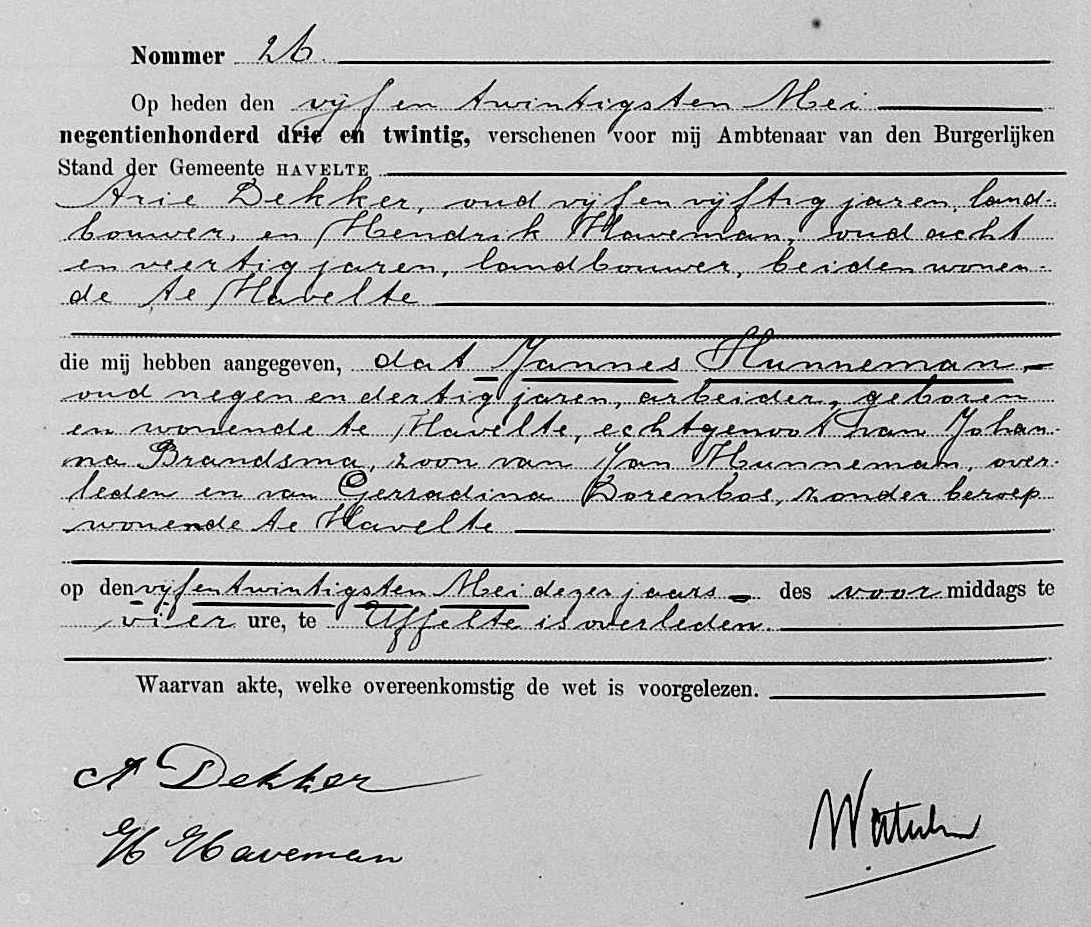 Nommer 26.
Op heden den vijf en twintigsten Mei
negentienhonderd drie en twintig, verschenen voor mij Ambtenaar van den Burgerlijken
Stand der Gemeente HAVELTE
Arie Dekker, oud vijf en vijftig jaren, land-
bouwer, en Hendrik Haveman, oud acht
en veertig jaren, landbouwer, beiden wonen-
de te Havelte
die mij hebben aangegeven, dat Jannes Hunneman,
oud negen en dertig jaren, arbeider, geboren
en wonende te Havelte, echtgenoot van Johan-
na Brandsma, zoon van Jan Hunneman, over-
leden en van Gerradina Dorenbos, zonder beroep
wonende te Havelte
op den vijfentwintigsten Mei dezer jaars des voormiddags te
vier ure, te Uffelte is overleden.
Waarvan akte, welke overeenkomstig de wet is voorgelezen.
A Dekker
H Haveman